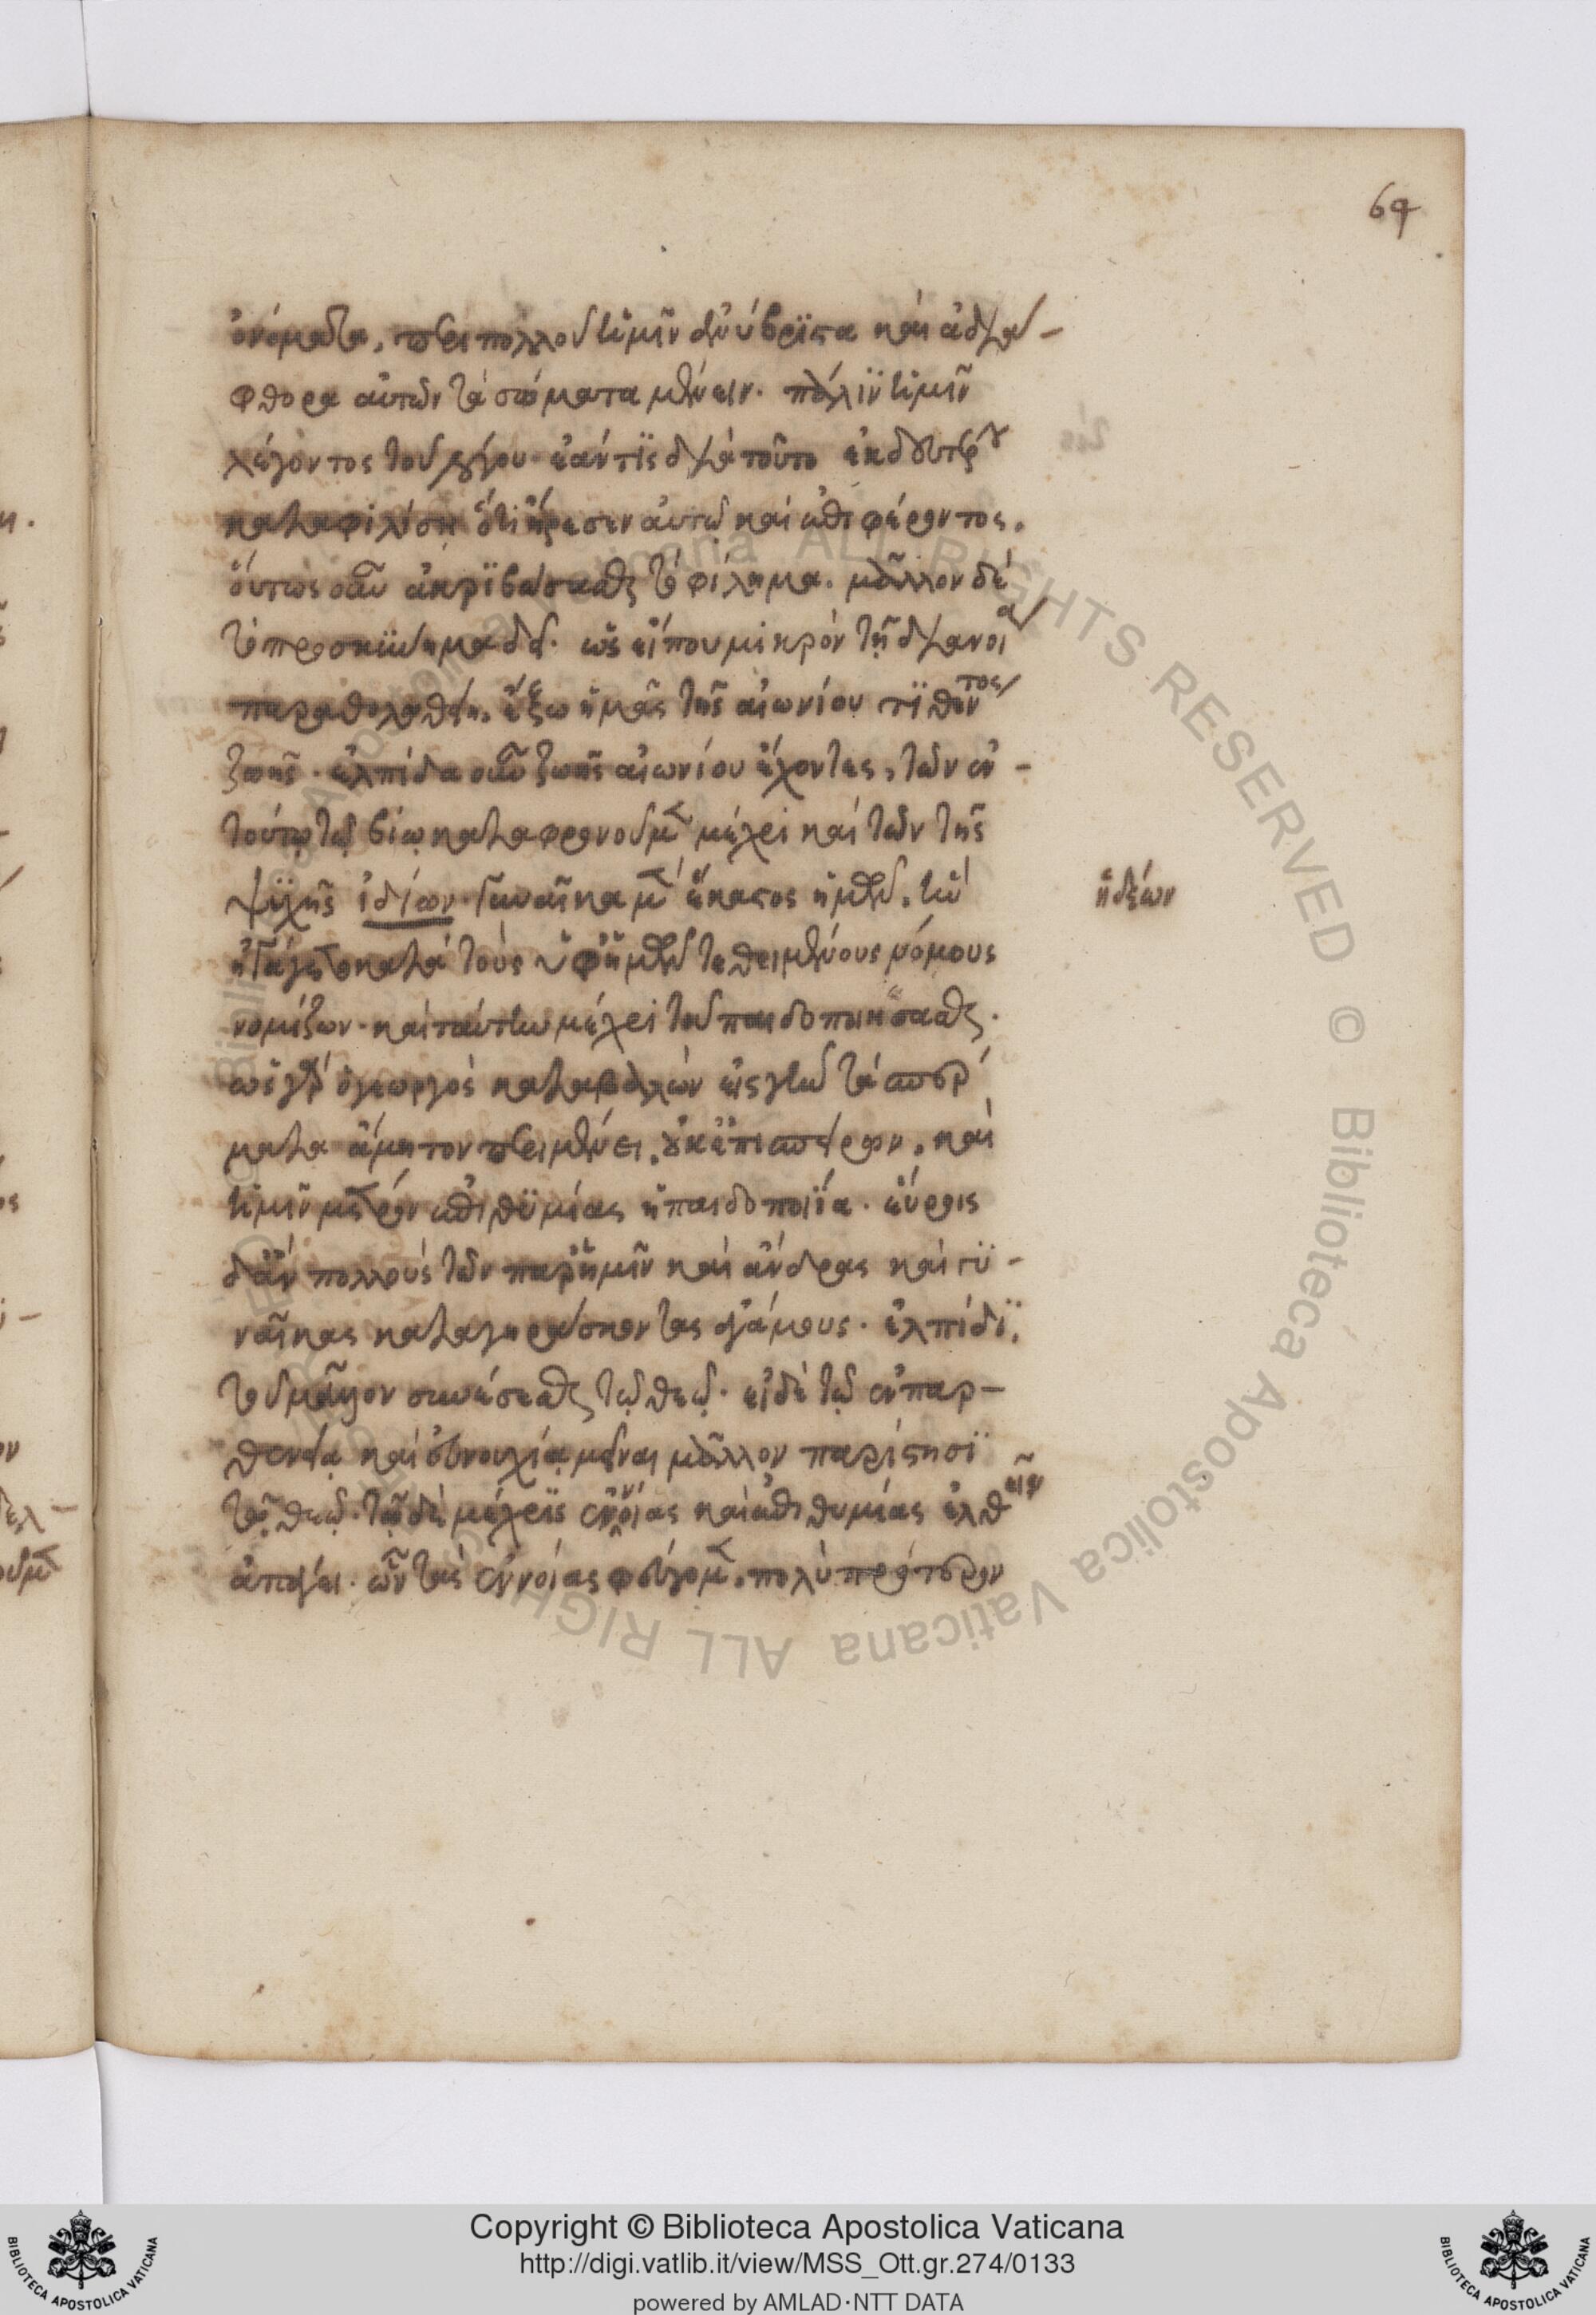 64
ὀνόματα, περὶ πολλοῦ ἡμῖν ἀνύβριστα καὶ ἀδιά-
φθορα αὐτῶν τὰ σώματα μένειν. πάλιν ἡμῖν
λέγοντος τοῦ λόγου· ἐάν τις διὰ τοῦτο ἐκ δευτέρου
καταφιλήσῃ ὅτι ἤρεσεν αὐτῷ καὶ ἐπιφέροντος.
οὕτως οὖν ἀκριβώσασθαι τὸ φίλημα. μᾶλλον δὲ
τὸ προσκύνημα δεῖ. ὡς εἴπου μικρὸν τῇ διανοίᾳ
παραθολωθείη, ἔξω ἡμᾶς τῆς αἰωνίου τιθέντος
ζωῆς. ἐλπίδα οὖν ζωῆς αἰωνίου ἔχοντες, τῶν ἐν
τούτῳ τῷ βίῳ καταφρονοῦμεν μέχρι καὶ τῶν τῆς
ψυχῆς ἰδίων. γυναῖκα μὲν ἕκαστος ἡμῶν, ἣν
ἠγάγετο κατὰ τοὺς ὑφ' ἡμῶν τεθειμένους νόμους
νομίζων. καὶ ταύτην μέχρι τοῦ παιδοποιήσασθαι.
ὡς γὰρ ὁ γεωργὸς καταβάλλων εἰς γῆν τὰ σπέρ
ματα ἄμητον περιμένει, οὐκ ἐπισπείρων, καὶ
ἡμῖν μέτρον ἐπιθυμίας ἡ παιδοποιία. εὕροις
δ' ἂν πολλοὺς τῶν παρ' ἡμῖν καὶ ἄνδρας καὶ γυ-
ναῖκας καταγηράσκοντας ἀγάμους. ἐλπίδι
τοῦ μᾶλλον συνέσεσθαι τῷ θεῷ. εἰ δὲ τῷ ἐν παρ-
θενίᾳ καὶ εὐνουχίᾳ μεῖναι μᾶλλον παρίστησι
τῷ θεῷ. τῷ δὲ μέχρις ἐννοίας καὶ ἐπιθυμίας ἐλθεῖν
ἀπάγει. ὧν τὰς ἐννοίας φεύγομεν, πολὺ πρότερον
ἡδέων
Copyright © Biblioteca Apostolica Vaticana
http://digi.vatlib.it/view/MSS_Ott.gr.274/0133
powered by AMLAD·NTT DATA